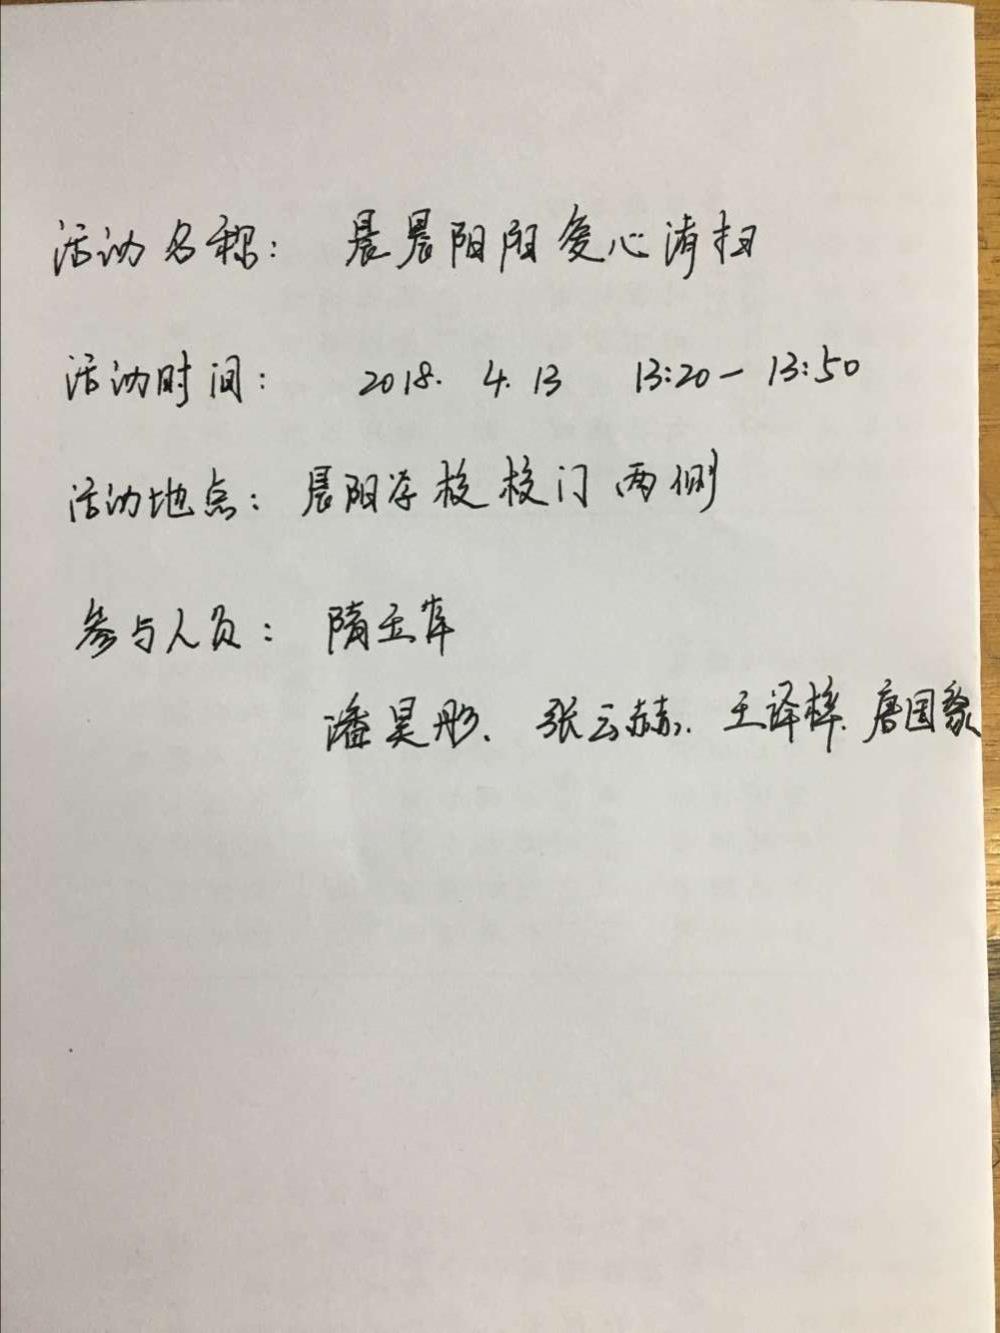 活动名称： 晨晨阳阳爱心清扫
活动时间： 2018. 4. 13 13:20—13:50
活动地点：晨阳学校校门两侧
参与人员： 隋玉
潘昊彤、张云赫、王译梓、唐国